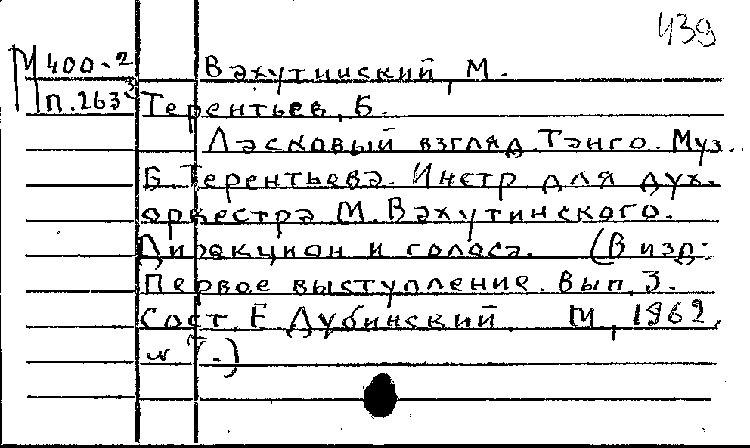 439
М 400-2 Вахутинский, М.
П.263 Терентьев, Б.
Ласковый взгляд. Танго. Муз.
Б. Терентьева. Инстр. для дух.
оркестра М. Вахутинского.
Дирекцион и голоса. (В изд:
Первое выступление. Вып. 3.
Сост. Е. Дубинский. М., 1962.